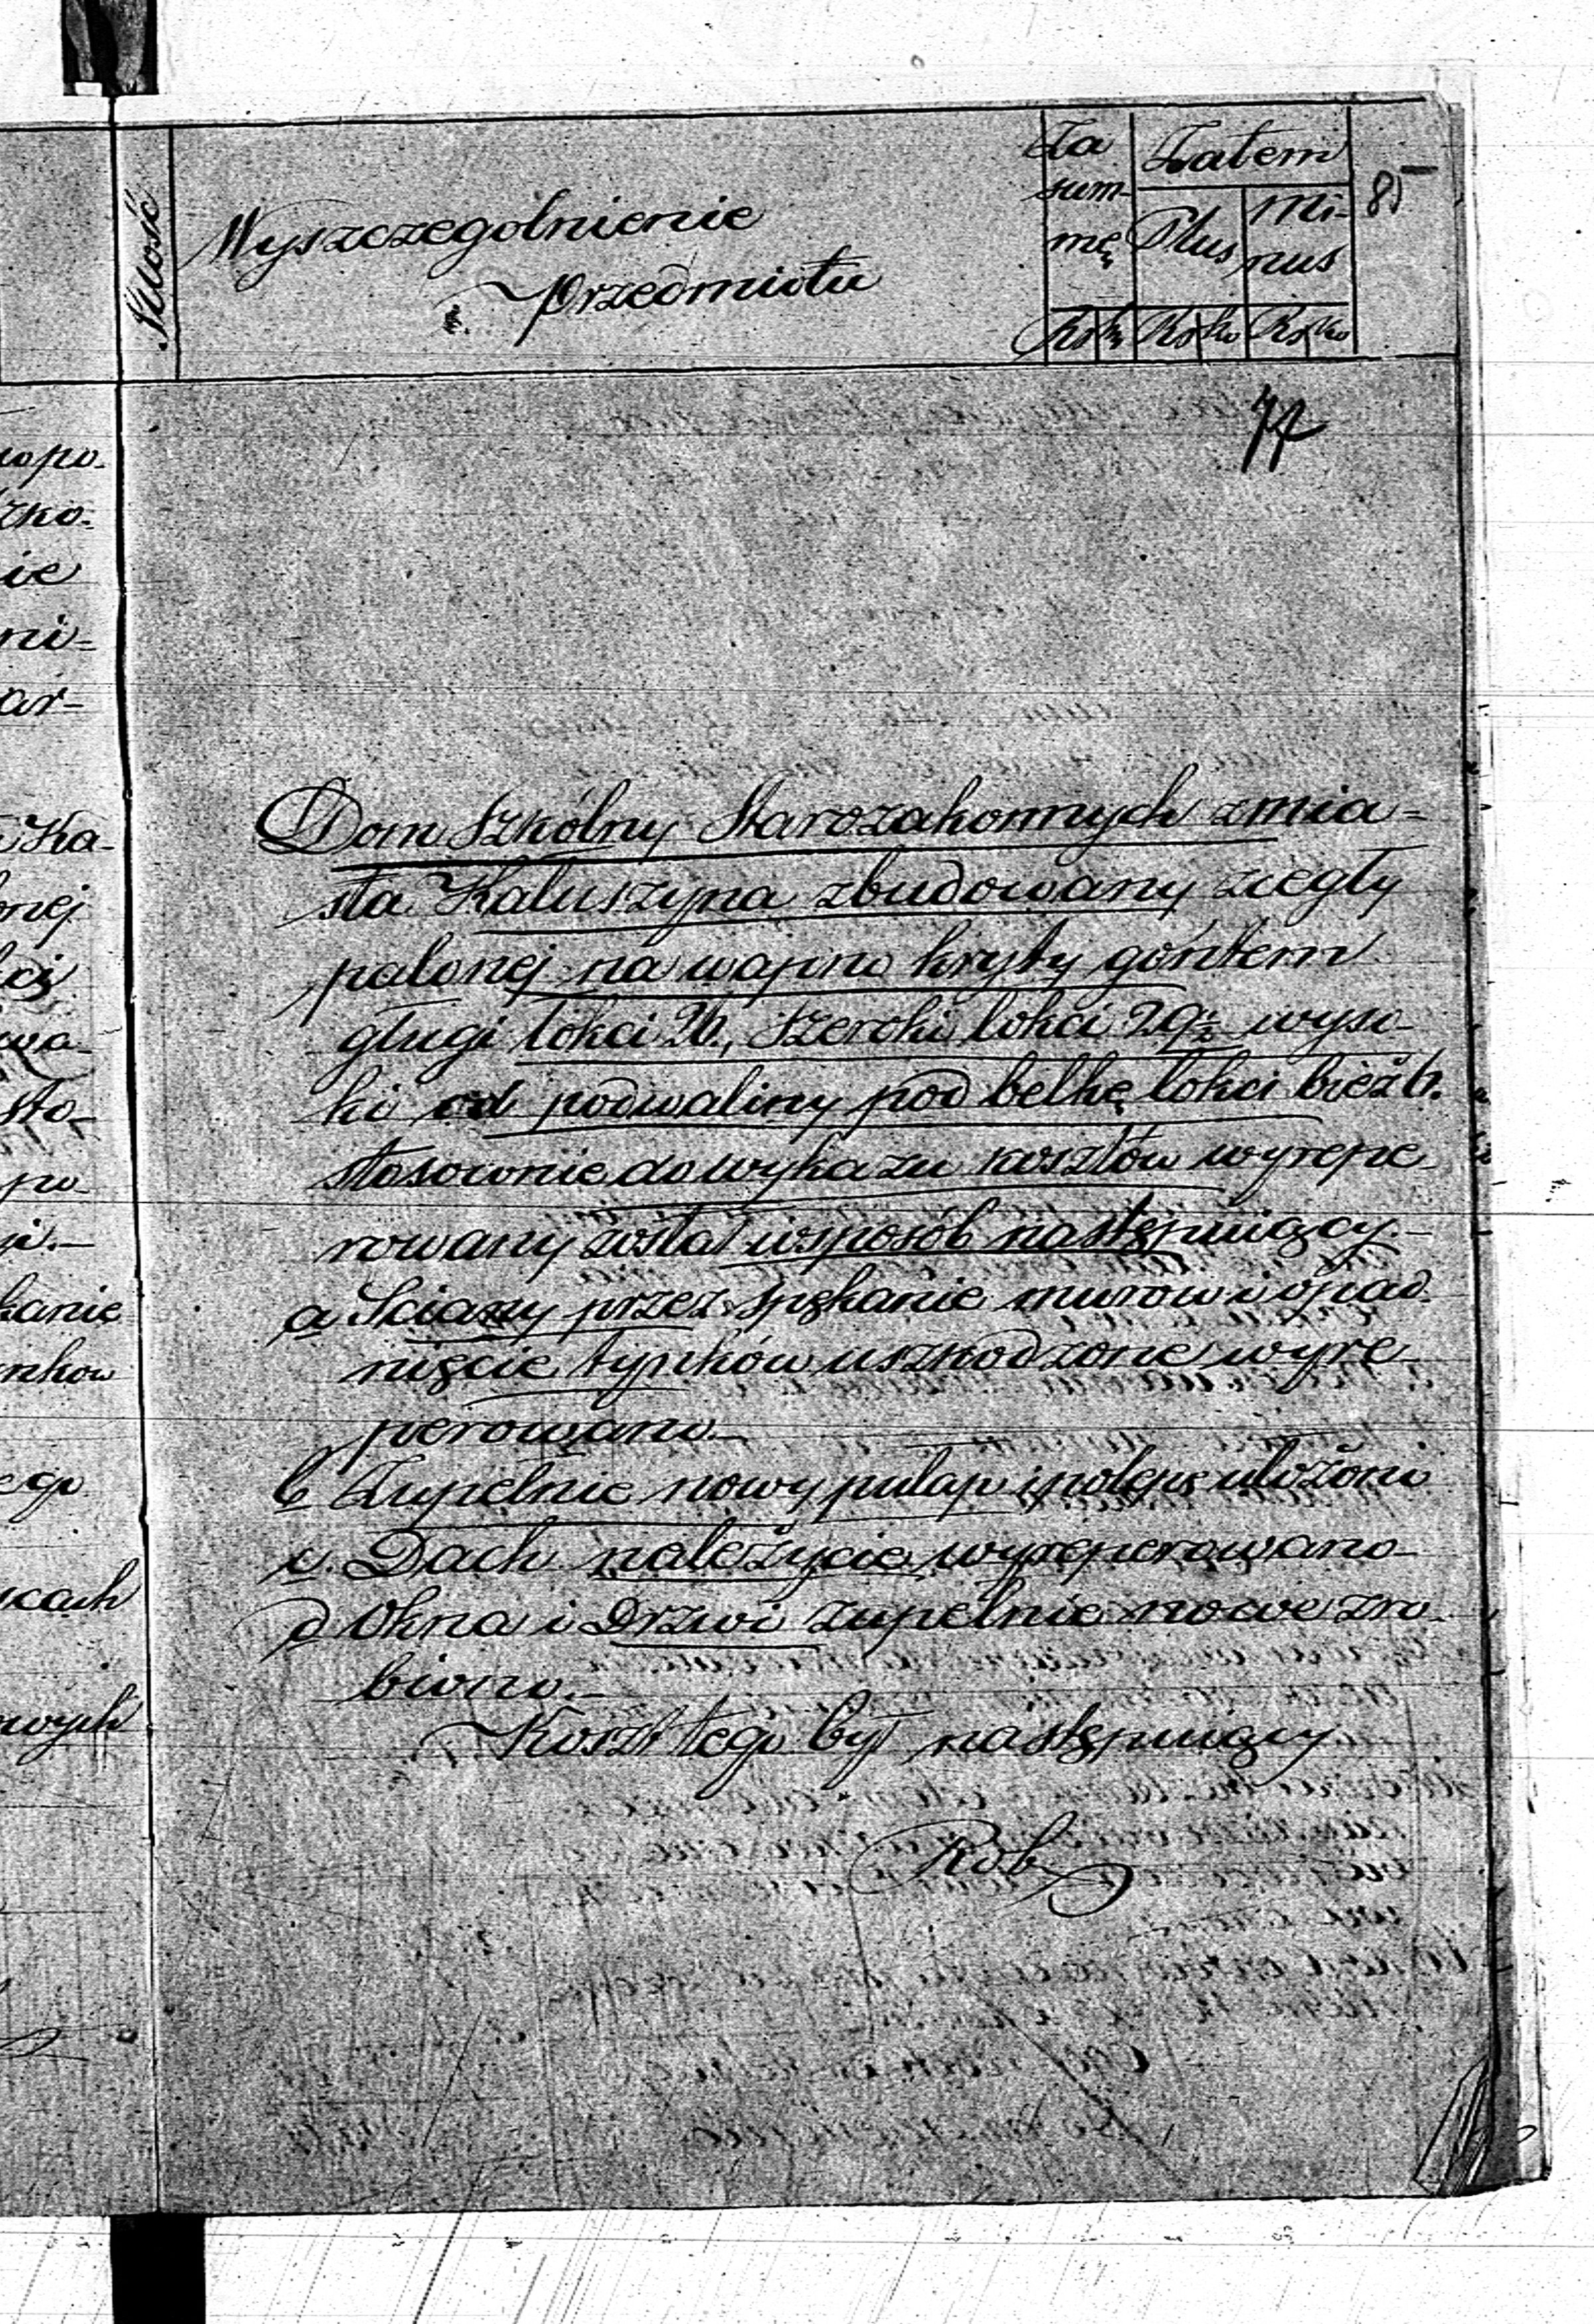 Ilość
Wyszczegolnienie
przedmiotu
Za
sum-
mę
Zatem
Plus
Mi-
nus
Rs ko Rs ko Rs ko
85
Dom Szkólny Starozakonnych zmia-
sta Kałuszyna zbudowany zcegły
palonej na wapno kryty gontem
gługi łokci 26, szeroki łokci 29½ wyso-
ki od podwaliny pod belkę łokci bież 6.
stosownie do wykazu kosztów wyrepe-
rowany został wsposób następuiący.-
a Sciany przez spękanie murow i opad-
nięcie tynków uszkodzone wyre-
perowano-
b Zupełnie nowy pułap i polepę ułożono
c. Dach należycie wyreperowano-
d Okna i Drzwi zupełnie nowe zro-
biono.-
Koszt tego był następuiący
Rob
opo-
zko-
ie
ni-
ar-
Ka-
onej
kci
wa-
sto-
po-
kanie
nkow
ego
kach
owych